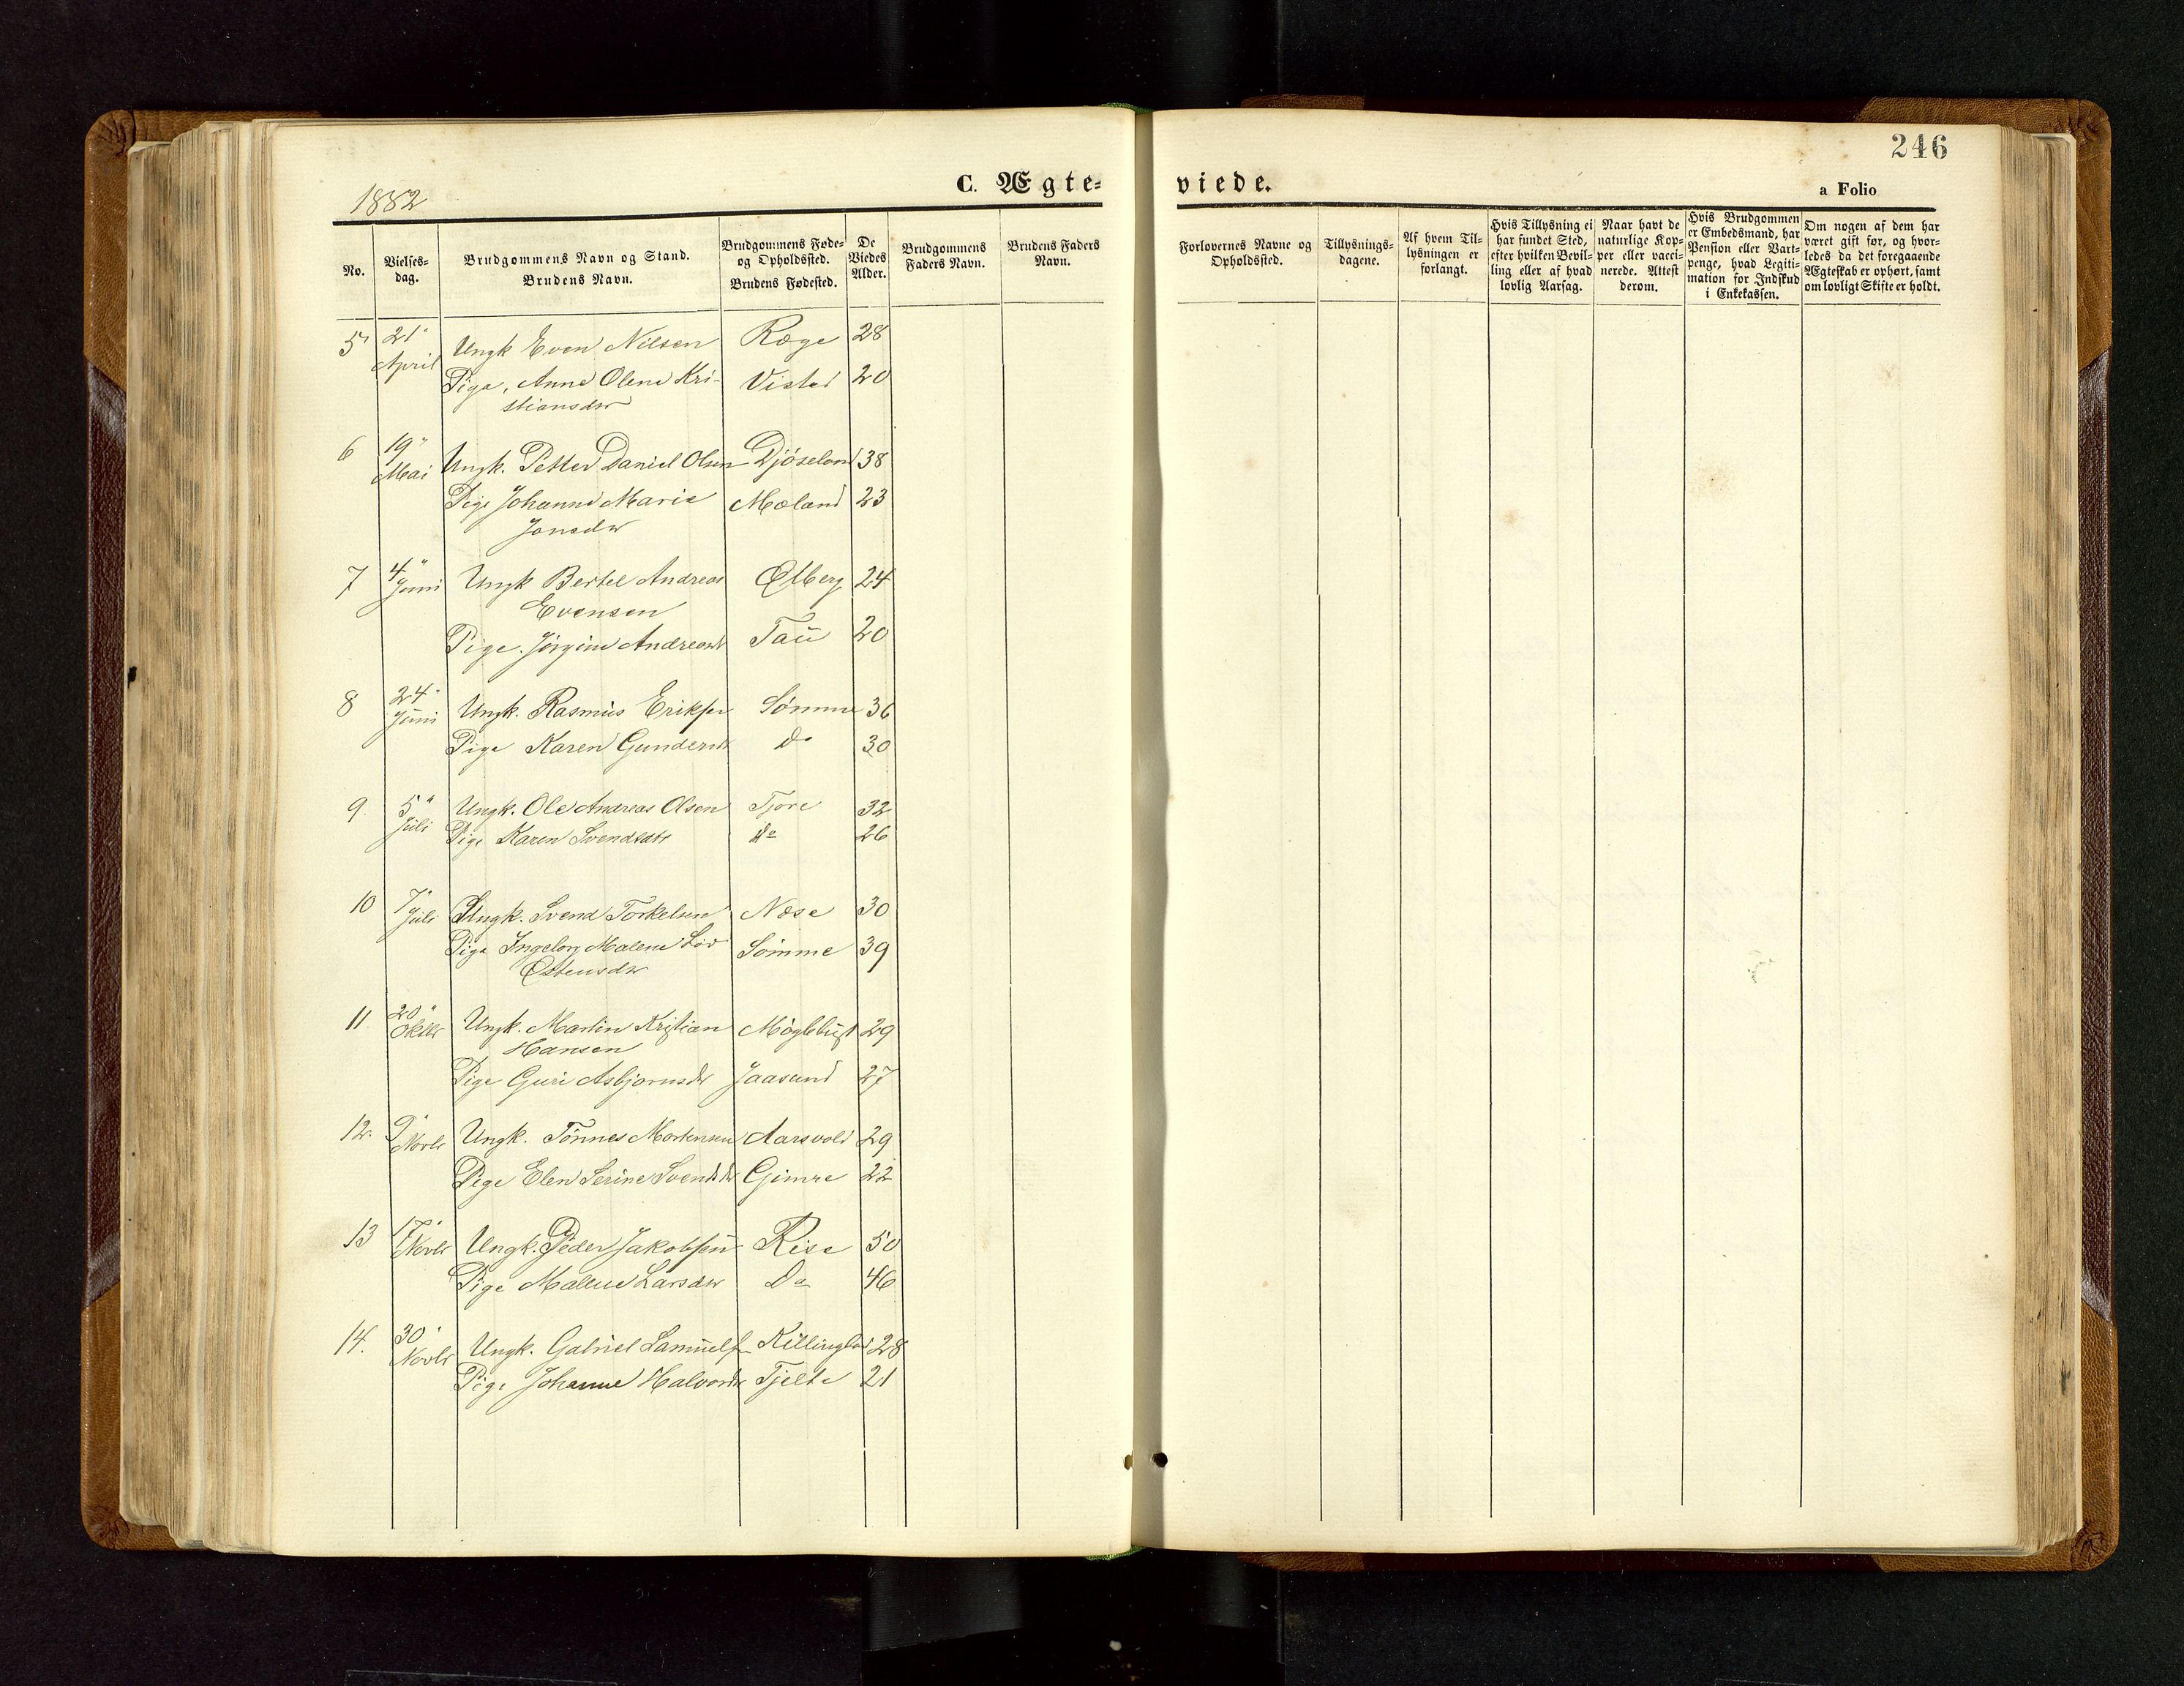 246
C. Ægte-
viede.
a Folio
1882
No.
Vielses-
dag.
Brudgommens Navn og Stand.
Brudens Navn.
Brudgommens Føde-
og Opholdssted.
Brudens Fødested.
De
Viedes
Alder.
Brudgommens
Faders Navn.
Brudens Faders
Navn.
Forlovernes Navne og
Opholdssted.
Tillysnings-
dagene.
Af hvem Til-
lysningen er
forlangt.
Hvis Tillysning ei
har fundet Sted,
efter hvilken Bevil-
ling eller af hvad
lovlig Aarsag.
Naar havt de
naturlige Kop-
per eller vacci-
nerede. Attest
derom.
Hvis Brudgommen
er Embedsmand, har
Pension eller Vart-
penge, hvad Legiti-
mation for Indskud
i Enkekassen.
Om nogen af dem har
været gift før, og hvor-
ledes da det foregaaende
Ægteskab er ophørt, samt
om lovligt Skifte er holdt.
5 21 April Ungk Even Nilsen Ræge 28
Pige, Anne Olene Kri-
stiansdtr Vistad 20
6 19 Mai Ungk. Petter Daniel Olsen Djöseland 38
Pige Johanne Marie Mæland 23
Jonsdtr
7 4 Juni Ungk Bertel Andreas Ølberg 24
Evensen
Pige. Jörgine Andreasdtr Tau 20
8 24 Juni Ungk. Rasmus Eriksen Sömme 36
Pige Karen Gundersdtr Do 30
9. 5 Juli Ungk. Ole Andreas Olsen Tjore 32
Pige Karen Svendsdtr do 26
10 7 Juli Ungk. Svend Torkelsen Næse 30
Pige Ingeborg Malene Sömme 39
Østensdtr
11. 20 Oktbr Ungk. Martin Kristian Möglebust 29
Hansen
Pige Guri Asbjörnsdtr Jaasund 27
12. 9 Novbr Ungk. Tönnes Mortensen Aarsvold 29
Pige Elen Serine Svendsdtr Gimre 22
13 17 Novbr Ungk. Peder Jakobsen Rise 50
Pige Malene Larsdtr Do 46
14. 30 Novbr Ungk. Gabriel Samuels. Killingland 28
Pige Johanne Halvordtr Tjelte 21